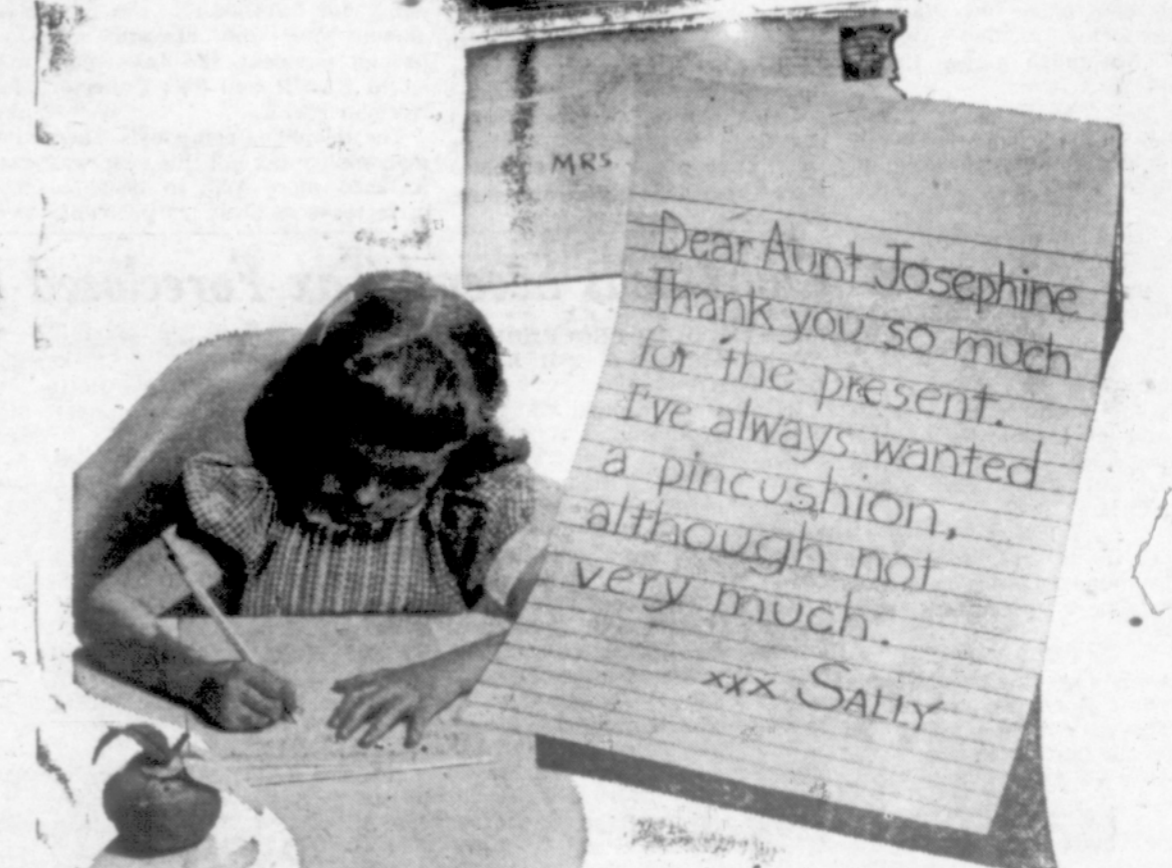 MRS
Dear Aunt Josephine
Thank you so much
for the present.
I've always wanted
a pincushion,
although not
very much.
xxx SALLY